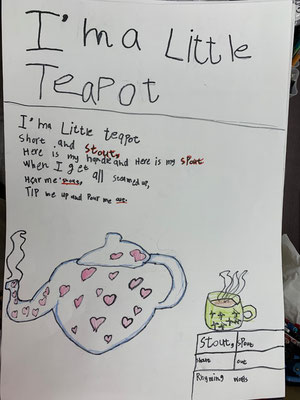 I'm a Little
Teapot
I'm a Little teapot
Short and Stout,
Here is my handle and Here is my Spout
When I get all steamed up,
Hear me shout,
TIP me up and Pour me out.
Stout, Spout
shout out
Rhyming words